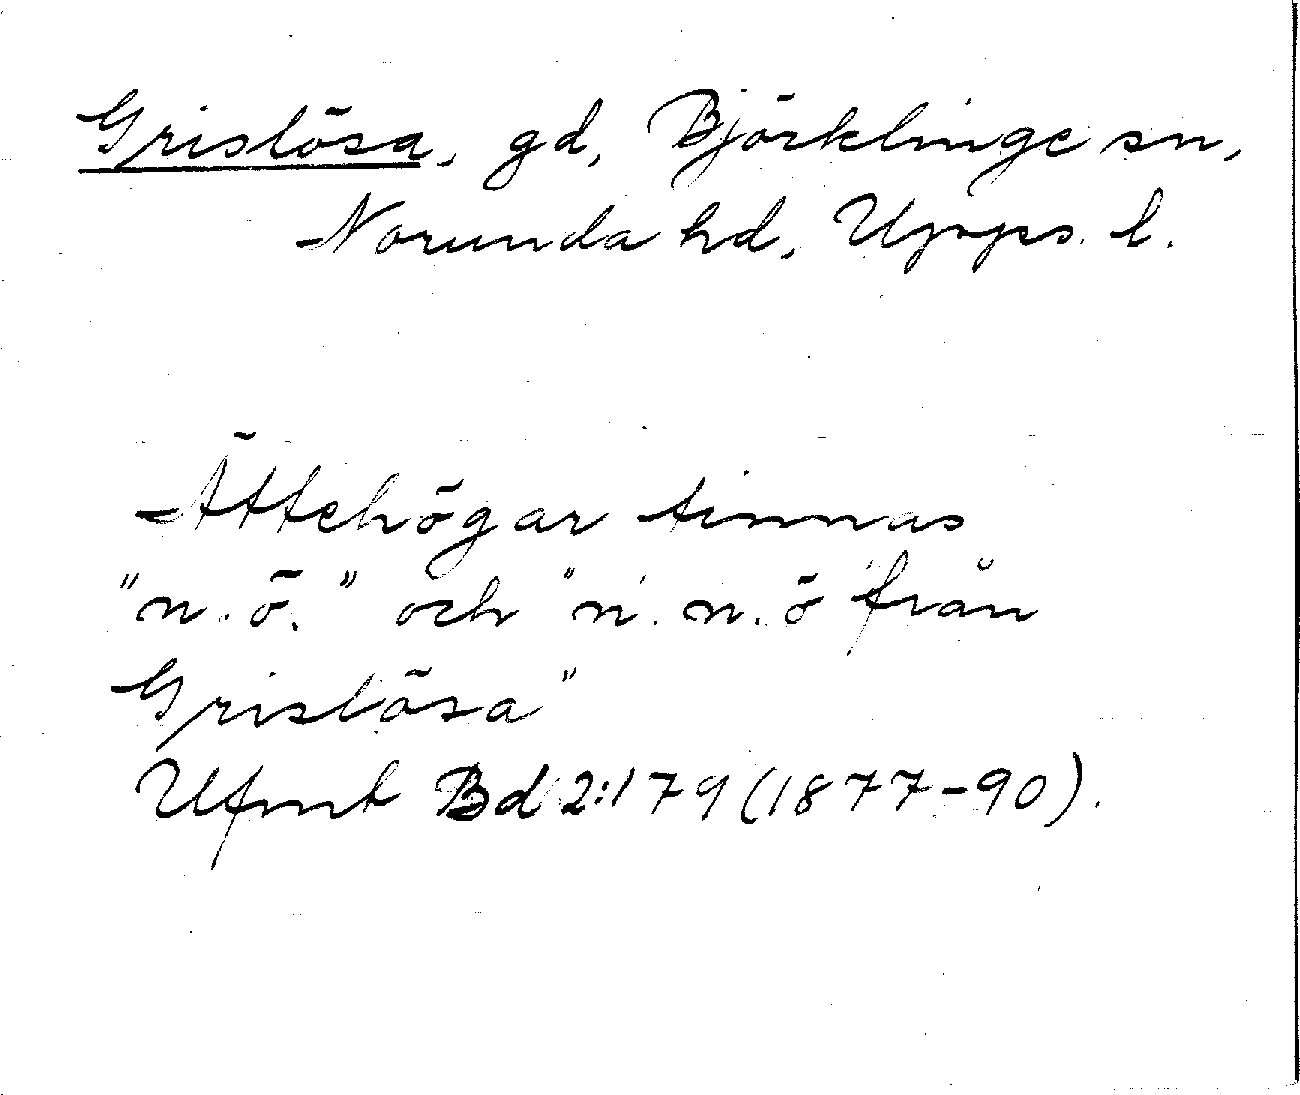 Grislösa, gd, Björklinge sn,
Norunda hd, Upps. l.
Ättehögar finnas
"n.ö." och "n.n.ö från
Grislösa"
Ufmt Bd 2:179 (1877-90).